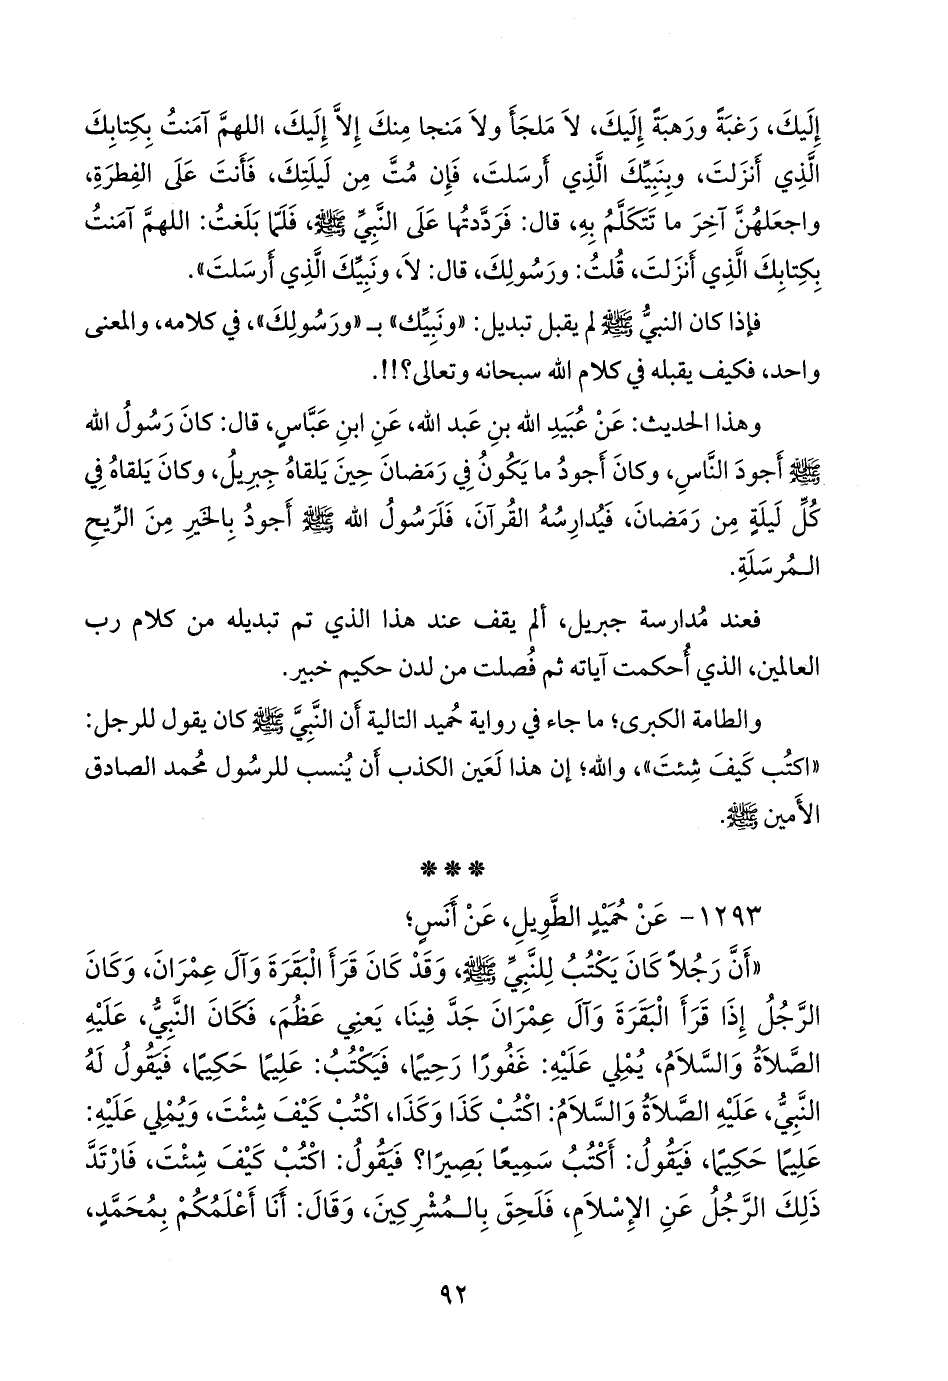 إِلَيكَ، رَغبَةً ورَهبَةً إِلَيكَ، لاَ مَلجَأَ ولاَ مَنجا مِنكَ إِلاَّ إِلَيكَ، اللهمَّ آمَنتُ بِكِتابِكَ
الَّذِي أَنزَلتَ، وبِنَبِيِّكَ الَّذِي أَرسَلتَ، فَإِن مُتَّ مِن لَيلَتِكَ، فَأَنتَ عَلَى الفِطرَةِ،
واجعَلهُنَّ آخِرَ ما تَتَكَلَّمُ بِهِ، قال: فَرَدَّدتُها عَلَى النَّبِيِّ ﷺ، فَلَمّا بَلَغتُ: اللهمَّ آمَنتُ
بِكِتابِكَ الَّذِي أَنزَلتَ، قُلتُ: ورَسُولِكَ، قال: لاَ، ونَبِيِّكَ الَّذِي أَرسَلتَ».
فإذا كان النبيُّ ﷺ لم يقبل تبديل: «ونَبِيِّك» بـ «ورَسُولِكَ»، في كلامه، والمعنى
واحد، فكيف يقبله في كلام الله سبحانه وتعالى؟!!.
وهذا الحديث: عَنْ عُبَيدِ الله بنِ عَبد الله، عَنِ ابنِ عَبَّاسٍ، قال: كانَ رَسُولُ الله
ﷺ أَجودَ النَّاسِ، وكانَ أَجودُ ما يَكُونُ فِي رَمَضانَ حِينَ يَلقاهُ جِبرِيلُ، وكانَ يَلقاهُ فِي
كُلِّ لَيلَةٍ مِن رَمَضانَ، فَيُدارِسُهُ القُرآنَ، فَلَرَسُولُ الله ﷺ أَجودُ بِالخَيرِ مِنَ الرِّيحِ
الـمُرسَلَةِ.
فعند مُدارسة جبريل، ألم يقف عند هذا الذي تم تبديله من كلام رب
العالمين، الذي أُحكمت آياته ثم فُصلت من لدن حكيم خبير.
والطامة الكبرى؛ ما جاء في رواية حُميد التالية أن النَّبِيَّ ﷺ كان يقول للرجل:
«اكتُب كَيفَ شِئتَ»، والله؛ إن هذا لَعَين الكذب أن يُنسب للرسُول مُحمد الصادق
الأَمين ﷺ.
* * *
١٢٩٣- عَنْ حُمَيْدٍ الطَّوِيلِ، عَنْ أَنَسٍ؛
«أَنَّ رَجُلاً كَانَ يَكْتُبُ لِلنَّبِيِّ ﷺ، وَقَدْ كَانَ قَرَأَ الْبَقَرَةَ وَآلَ عِمْرَانَ، وَكَانَ
الرَّجُلُ إِذَا قَرَأَ الْبَقَرَةَ وَآلَ عِمْرَانَ جَدَّ فِينَا، يَعنِي عَظُمَ، فَكَانَ النَّبِيُّ، عَلَيْهِ
الصَّلاَةُ وَالسَّلاَمُ، يُمْلِي عَلَيْهِ: غَفُورًا رَحِيمًا، فَيَكْتُبُ: عَلِيمًا حَكِيمًا، فَيَقُولُ لَهُ
النَّبِيُّ، عَلَيْهِ الصَّلاَةُ وَالسَّلاَمُ: اكْتُبْ كَذَا وَكَذَا، اكْتُبْ كَيْفَ شِئْتَ، وَيُمْلِي عَلَيْهِ:
عَلِيمًا حَكِيمًا، فَيَقُولُ: أَكْتُبُ سَمِيعًا بَصِيرًا؟ فَيَقُولُ: اكْتُبْ كَيْفَ شِئْتَ، فَارْتَدَّ
ذَلِكَ الرَّجُلُ عَنِ الإِسْلاَمِ، فَلَحِقَ بِالـمُشْرِكِينَ، وَقَالَ: أَنَا أَعْلَمُكُمْ بِمُحَمَّدٍ،
٩٢